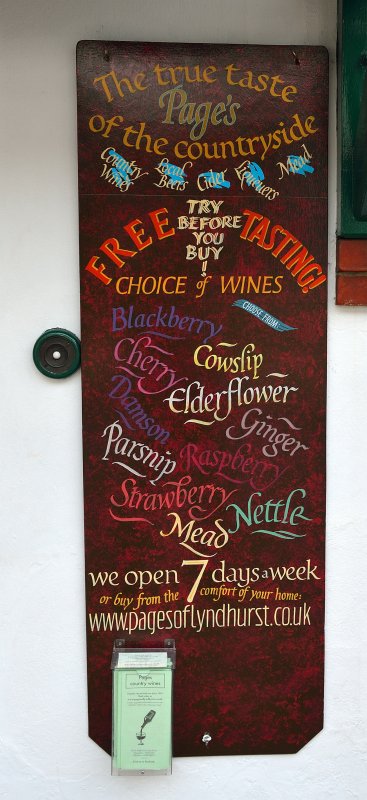 The true taste
Page's
of the countryside
Country Wines Local Beers Cider Liqueurs Mead
FREE TRY BEFORE YOU BUY! TASTING!
CHOICE of WINES
CHOOSE FROM
Blackberry
Cherry
Cowslip
Damson
Elderflower
Ginger
Parsnip
Raspberry
Strawberry
Nettle
Mead
we open 7 days a week
or buy from the comfort of your home:
www.pagesoflyndhurst.co.uk
Pages
country wines